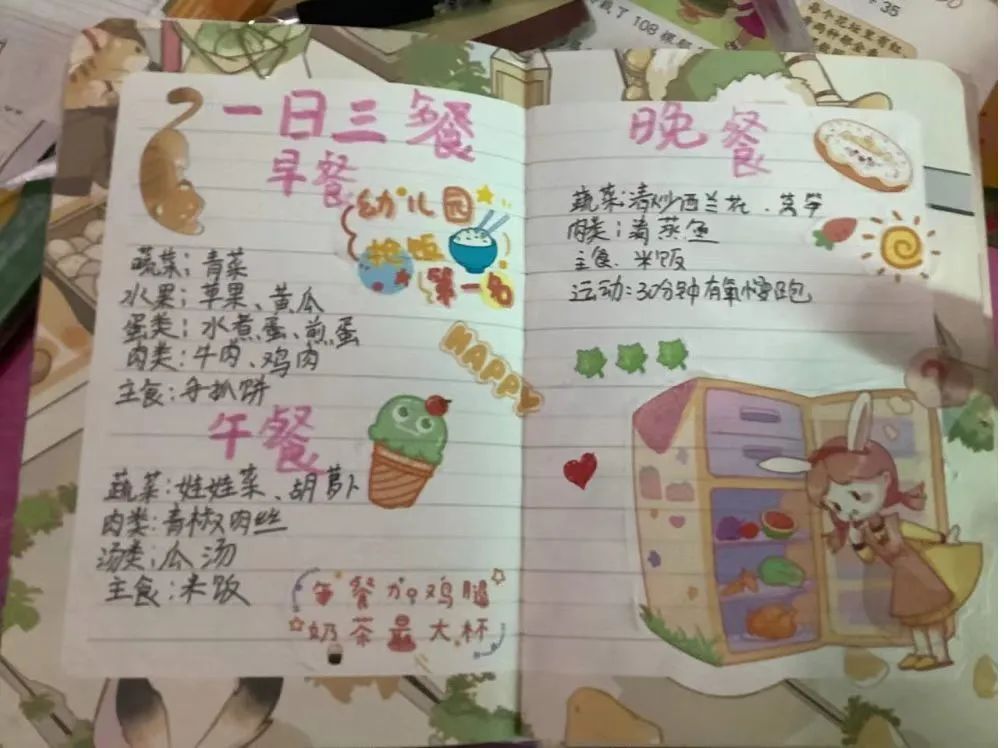 一日三餐
早餐
幼儿园
抢饭
第一名
蔬菜:青菜
水果:苹果、黄瓜
蛋类:水煮蛋、煎蛋
肉类:牛肉、鸡肉
主食:手抓饼
HAPPY
午餐
蔬菜:娃娃菜、胡萝卜
肉类:青椒肉丝
汤类:瓜汤
主食:米饭
每餐加鸡腿
奶茶最大杯
晚餐
蔬菜:清炒西兰花、莴笋
肉类:清蒸鱼
主食:米饭
运动:30分钟有氧慢跑
了108棵
35